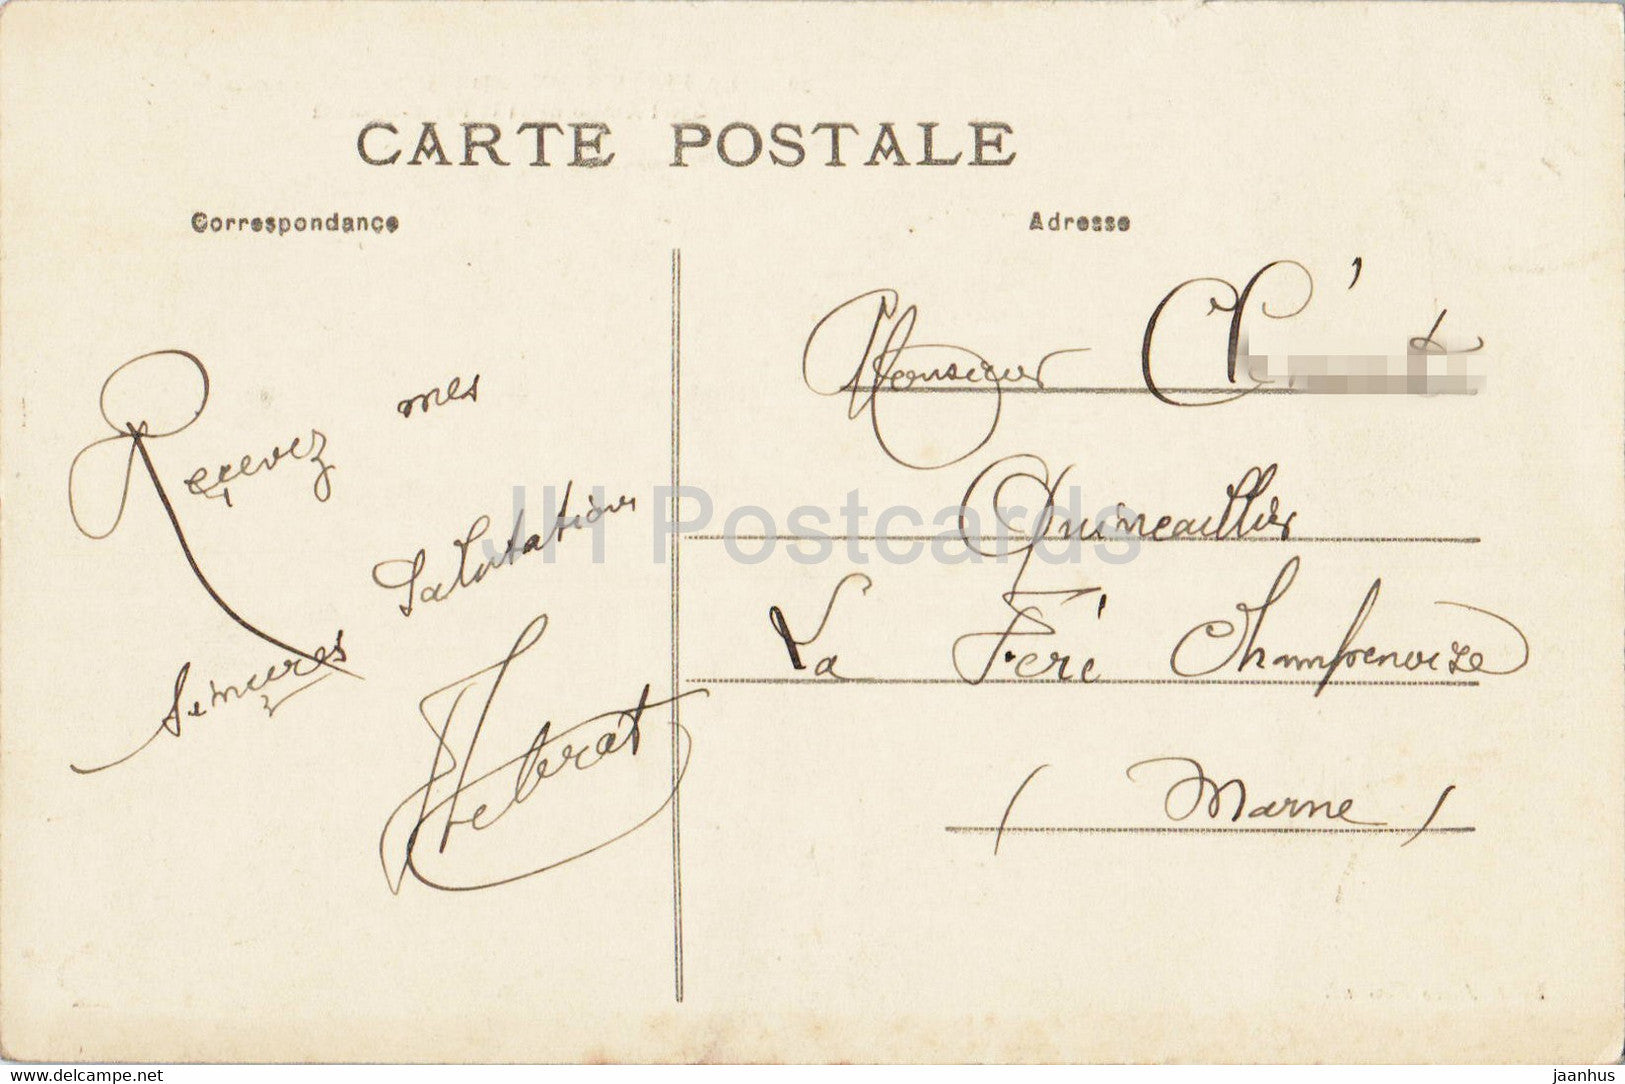 CARTE POSTALE
Correspondance
Adresse
Reçevez mes
Salutations
Sincères
Monsieur
Quincaillier
La Fère Champenoise
(Marne)
JH Postcards
www.delcampe.net
jaanhus